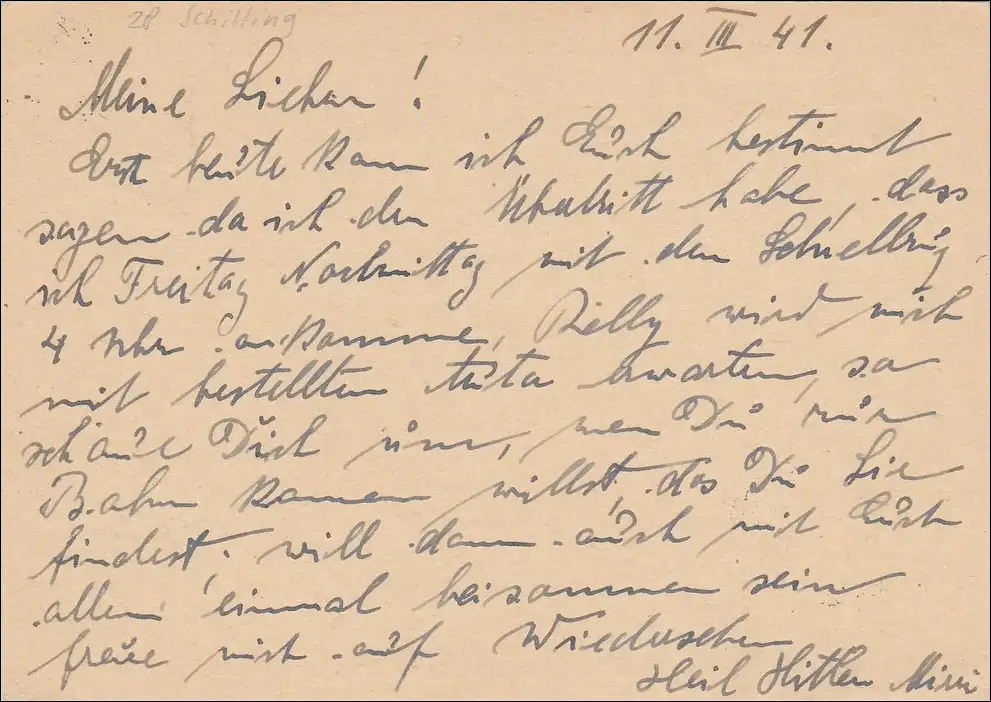 28 Schilling
11. III 41.
Meine Lieben!
Erst heute kann ich Euch bestimmt
sagen da ich den Übertritt habe, dass
ich Freitag Nachmittag mit dem Schnellzug
4 Uhr ankomme, wird mich
mit bestellten Auto erwarten, so
schaue Dich um, wen Du zur
Bahn kommen willst, das Du Sie
findest, will dann auch mit Euch
allein einmal beisammen sein
freue mich auf Wiedersehen
Heil Hitler Mizi